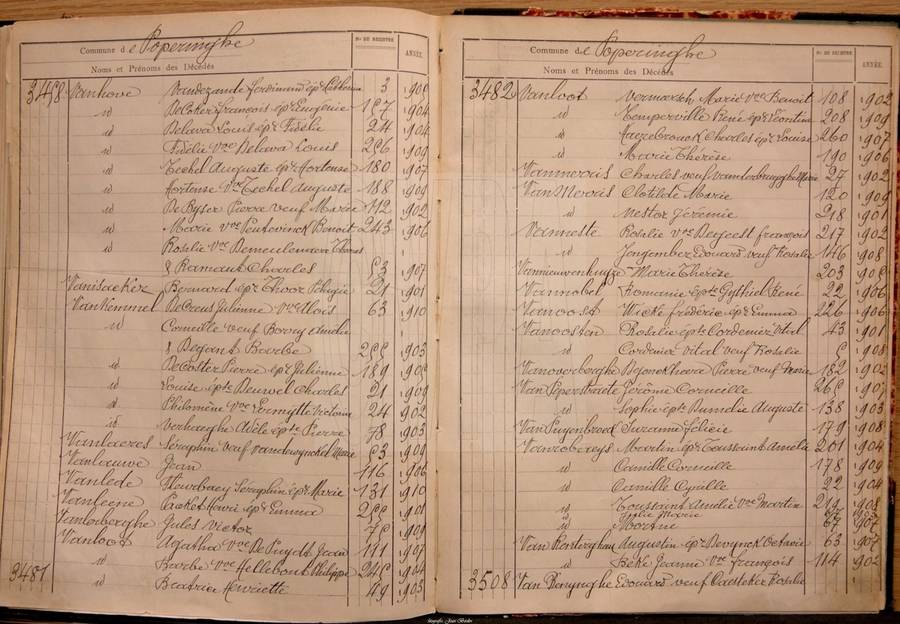 Commune de Poperinghe
Nos DE REGISTRE
ANNÉE
Noms et Prénoms des Décédés
3458 Vanhove Vandezande Ferdinand ép 3 906
id DeCoker François ép Eugénie 157 904
id Delava Louis ép Fidélie 24 904
id Fidélie Vve Delava Louis 256 909
id Techel Auguste ép Hortense 180 907
id Hortense Vve Techel Auguste 188 909
id DeRyser Pierre veuf Marie 112 902
id Marie Vve Peutevinck Benoit 243 906
id Rosalie Vve Demeulenaere
& Ramaut Charles 53 907
Vanisacker Bernard ép Thoor Pélagie 21 901
VanKemmel DeCreus Julienne Vve Aloïs 63 910
id Corneille veuf Bovry Amélie
& Degant Barbe 255 903
id DeCoster Pierre ép Julienne 189 905
id Louise épte Deuwel Charles 21 909
id Philomène Vve Lermytte Victorin 24 902
id Verhaeghe Adèle épte Pierre 78 903
Vanlaeres Séraphin veuf Vandewynckel Marie 53 909
Vanlauwe Jean 116 906
Vanlede Séraphin ép Marie 131 910
Vanleene Casket Henri ép Emma 255 901
Vanlerberghe Jules Victor 75 901
Vanloot Agatha Vve DePuydt Jean 111 907
id Barbe Vve Hellebout Philippe 245 904
3481 id Béatrix Henriette 49 903
Commune de Poperinghe
Nos DE REGISTRE
ANNÉE
Noms et Prénoms des Décédés
3482 Vanloot Vermersch Marie Vve Benoit 108 902
id Temperville René ép Léontine 208 909
id Haezebrouck Charles ép Louise 260 907
id Marie Thérèse 190 906
Vanmerris Charles veuf Vanderbrugghe Marie 27 902
VanMerris Clotilde Marie 120 909
id Nestor Jérémie 218 901
Vanneste Rosalie Vve Degeest François 217 902
id Jongember Edouard veuf Rosalie 146 908
Vannieuwenhuyze Marie Thérèse 203 905
Vannobel Romanie épte Gythiel René 22 906
Vanoost Wické Frédéric ép Emma 226 906
Vanoosten Rosalie épte Cordenier Vital 43 901
id Cordenier Vital veuf Rosalie 5 908
Vanoverberghe Pierre veuf Marie 182 902
Van Peperstraete Jérôme Corneille 265 907
id Sophie épte Dumelie Auguste 138 903
Van Puyenbroel Suzanne Félicie 179 908
Vanrobaeys Martin ép Toussaint Amélie 201 904
id Camille Corneille 178 909
id Camille Cyrille 92 904
id Toussaint Amélie Vve Martin 219 908
id Julie Marie
id Martine 67 907
Augustin ép Devynck Octavie 63 907
id Beke Jeanne Vve François 114 902
3508 Edouard veuf Casteker Rosalie